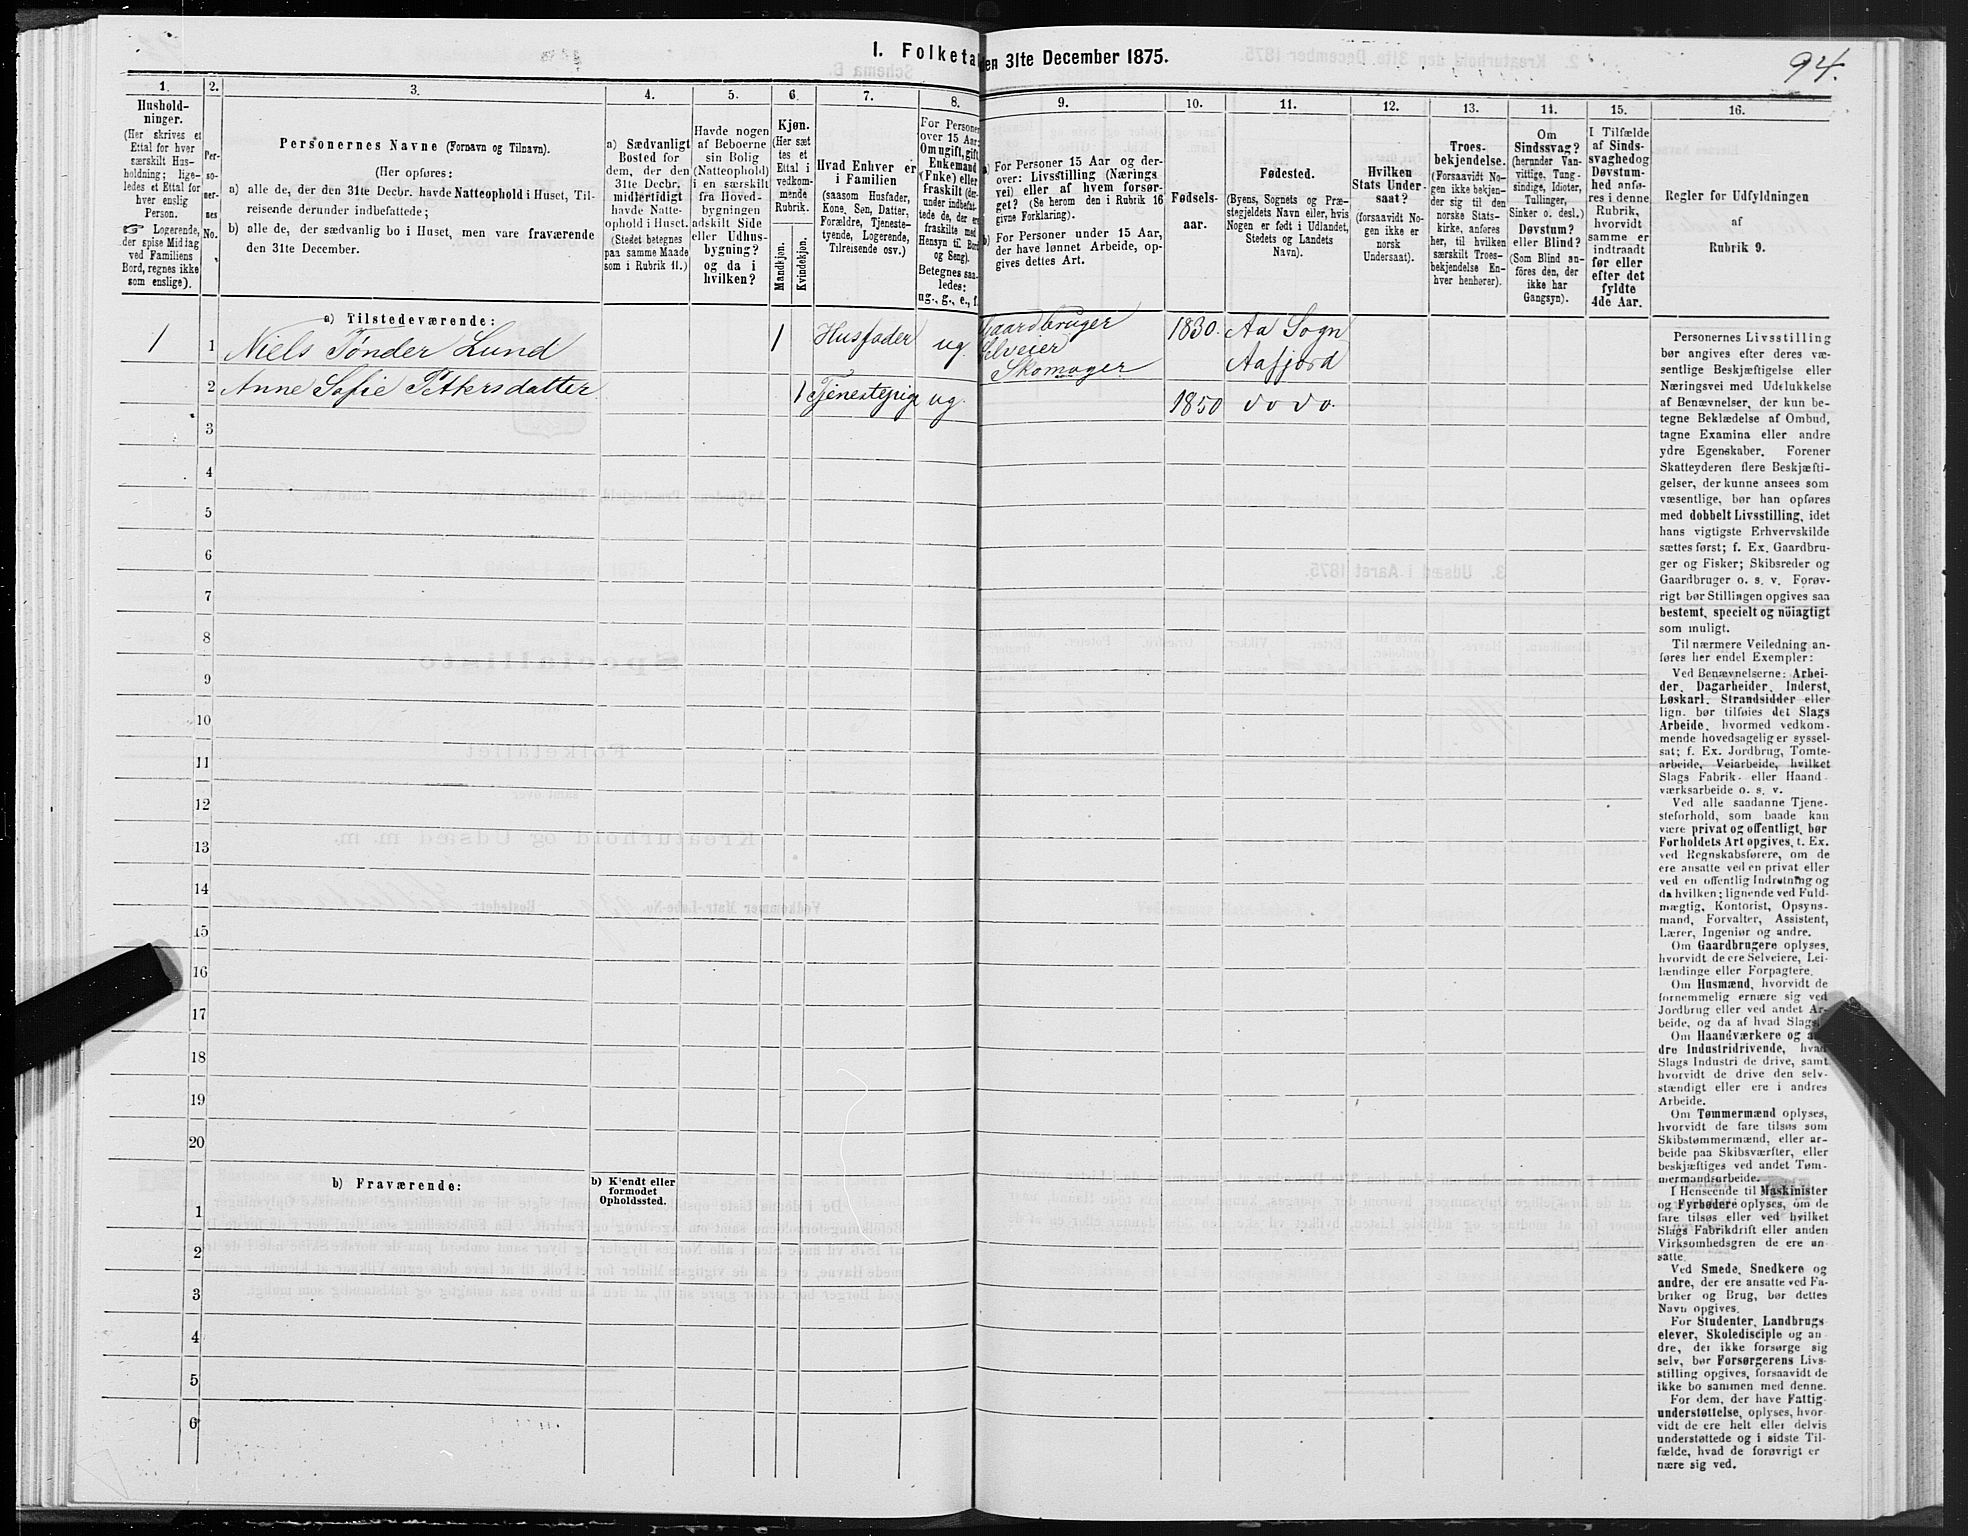 94.
1. Folketa
den 31te December 1875.
1.
2.
3.
4.
5.
6.
7.
8.
9.
10.
11.
12.
13.
14.
15.
16.
Hushold-
ninger.
(Her skrives et
Ettal for hver
særskilt Hus-
holdning; lige-
ledes et Ettal for
hver enslig
Person.
☞ Logerende,
der spise Middag
ved Familiens
Bord, regnes ikke
som enslige).
Per-
so-
ner-
nes
No.
Personernes Navne (Fornavn og Tilnavn).
(Her opføres:
a) alle de, der den 31te Decbr. havde Natteophold i Huset, Til-
reisende derunder indbefattede;
b) alle de, der sædvanlig bo i Huset, men vare fraværende
den 31te December.
a) Sædvanligt
Bosted for
dem, der den
31te Decbr.
midlertidigt
havde Natte-
ophold i Huset.
(Stedet betegnes
paa samme Maade
som i Rubrik 11.)
Havde nogen
af Beboerne
sin Bolig
(Natteophold)
i en særskilt
fra Hoved-
bygningen
adskilt Side
eller Udhus-
bygning?
og da i
hvilken?
Kjøn.
(Her sæt
tes et
Ettal i
vedkom-
mende
Rubrik.
Mandkjøn.
Kvindekjøn.
Hvad Enhver er
i Familien
(saasom Husfader,
Kone, Søn, Datter,
Forældre, Tjeneste-
tyende, Logerende,
Tilreisende osv.)
For Personer
over 15 Aar:
Om ugift, gift,
Enkemand
(Enke) eller
fraskilt (der-
under indbefat-
tede de, der ere
fraskilte med
Hensyn til Bord
og Seng).
Betegnes saa-
ledes:
ug., g., e., f.
a) For Personer 15 Aar og der-
over: Livsstilling (Nærings
vei) eller af hvem forsør-
get? (Se herom den i Rubrik 16
givne Forklaring).
b) For Personer under 15 Aar,
der have lønnet Arbeide, op-
gives dettes Art.
Fødsels-
aar.
Fødested.
(Byens, Sognets og Præ-
stegjeldets Navn eller, hvis
Nogen er født i Udlandet,
Stedets og Landets
Navn).
Hvilken
Stats Under-
saat?
(forsaavidt No-
gen ikke er
norsk
Undersaat).
Troes-
bekjendelse.
(Forsaavidt No-
gen ikke bekjen-
der sig til den
norske Stats-
kirke, anføres
her, til hvilken
særskilt Troes-
bekjendelse En-
hver henhører).
Om
Sindssvag?
(herunder Van-
vittige, Tung-
sindige, Idioter,
Tullinger,
Sinker o. desl.)
Døvstum?
eller Blind?
(Som Blind an-
føres den, der
ikke har
Gangsyn).
I Tilfælde
af Sinds-
svaghed og
Døvstum-
hed anfø-
res i denne
Rubrik,
hvorvidt
samme er
indtraadt
før eller
efter det
fyldte
4de Aar.
Regler for Udfyldningen
af
Rubrik 9.
a) Tilstedeværende:
1 1 Niels Tønder Lund 1 Husfader ug. Gaardbruger 1830. Aa Sogn
Selveier
Skomager Aafjord
2 Anne Sofie Pettersdatter 1 Tjenestepige ug. 1850 do do.
3
4
5
6
7
8
9
10
11
12
13
14
15
16
17
18
19
20
b) Fraværende:
b) Kjendt eller
formodet
Opholdssted.
1
2
3
4
5
6
Personernes Livsstilling
bør angives efter deres væ-
sentlige Beskjæftigelse eller
Næringsvei med Udelukkelse
af Benævnelser, der kun be-
tegne Beklædelse af Ombud,
tagne Examina eller andre
ydre Egenskaber. Forener
Skatteyderen flere Beskjæfti-
gelser, der kunne ansees som
væsentlige, bør han opføres
med dobbelt Livsstilling, idet
hans vigtigste Erhvervskilde
sættes først; f. Ex. Gaardbru-
ger og Fisker; Skibsreder og
Gaardbruger o. s. v. Forøv-
rigt bør Stillingen opgives saa
bestemt, specielt og nöiagtigt
som muligt.
Til nærmere Veiledning an-
føres her endel Exempler:
Ved Benævnelserne: Arbei-
der, Dagarbeider, Inderst,
Løskarl, Strandsidder eller
lign. bør tilføies det Slags
Arbeide, hvormed vedkom-
mende hovedsagelig er syssel-
sat; f. Ex. Jordbrug, Tomte-
arbeide, Veiarbeide, hvilket
Slags Fabrik- eller Haand-
værksarbeide o. s. v.
Ved alle saadanne Tjene-
steforhold, som baade kan
være privat og offentligt, bør
Forholdets Art opgives, f. Ex.
ved Regnskabsførere, om de
ere ansatte ved en privat eller
ved en offentlig Indretning og
da hvilken; lignende ved Fuld-
mægtig, Kontorist, Opsyns-
mand, Forvalter, Assistent,
Lærer, Ingeniør og andre.
Om Gaardbrugere oplyses,
hvorvidt de ere Selveiere, Lei-
lændinge eller Forpagtere.
Om Husmænd, hvorvidt de
fornemmelig ernære sig ved
Jordbrug eller ved andet Ar-
beide, og da af hvad Slags.
Om Haandværkere og an-
dre Industridrivende, hvad
Slags Industri de drive, samt
hvorvidt de drive den selv-
stændigt eller ere i andres
Arbeide.
Om Tømmermænd oplyses,
hvorvidt de fare tilsøs som
Skibstømmermænd, eller ar-
beide paa Skibsværfter, eller
beskjæftiges ved andet Tøm-
mermandsarbeide.
I Henseende til Maskinister
og Fyrbødere oplyses, om de
fare tilsøs eller ved hvilket
Slags Fabrikdrift eller anden
Virksomhedsgren de ere an-
satte
Ved Smede, Snedkere og
andre, der ere ansatte ved Fa-
briker og Brug, bør dettes
Navn opgives.
For Studenter, Landbrugs
elever, Skoledisciple og an-
dre, der ikke forsørge sig
selv, bør Forsørgerens Livs-
stilling opgives, forsaavidt de
ikke bo sammen med denne.
For dem, der have Fattig-
understøttelse, oplyses, hvor-
vidt de ere helt eller delvis
understøttede og i sidste Til-
fælde, hvad de forøvrigt er
nære sig ved.